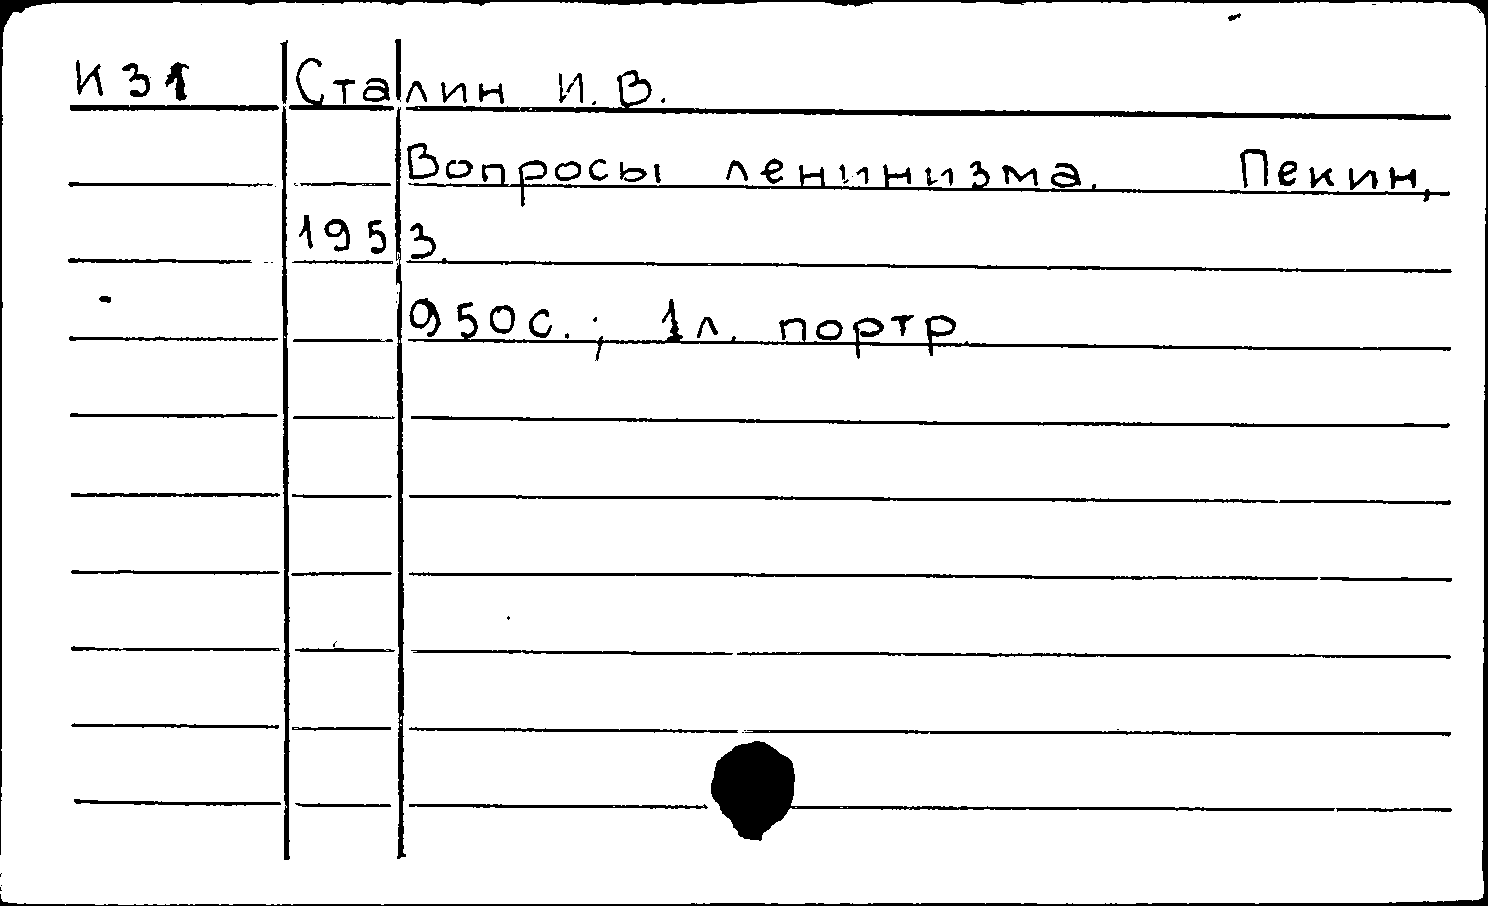 И31 Сталин И.В.
Вопросы ленинизма. Пекин,
1953.
950с.; 1л. портр